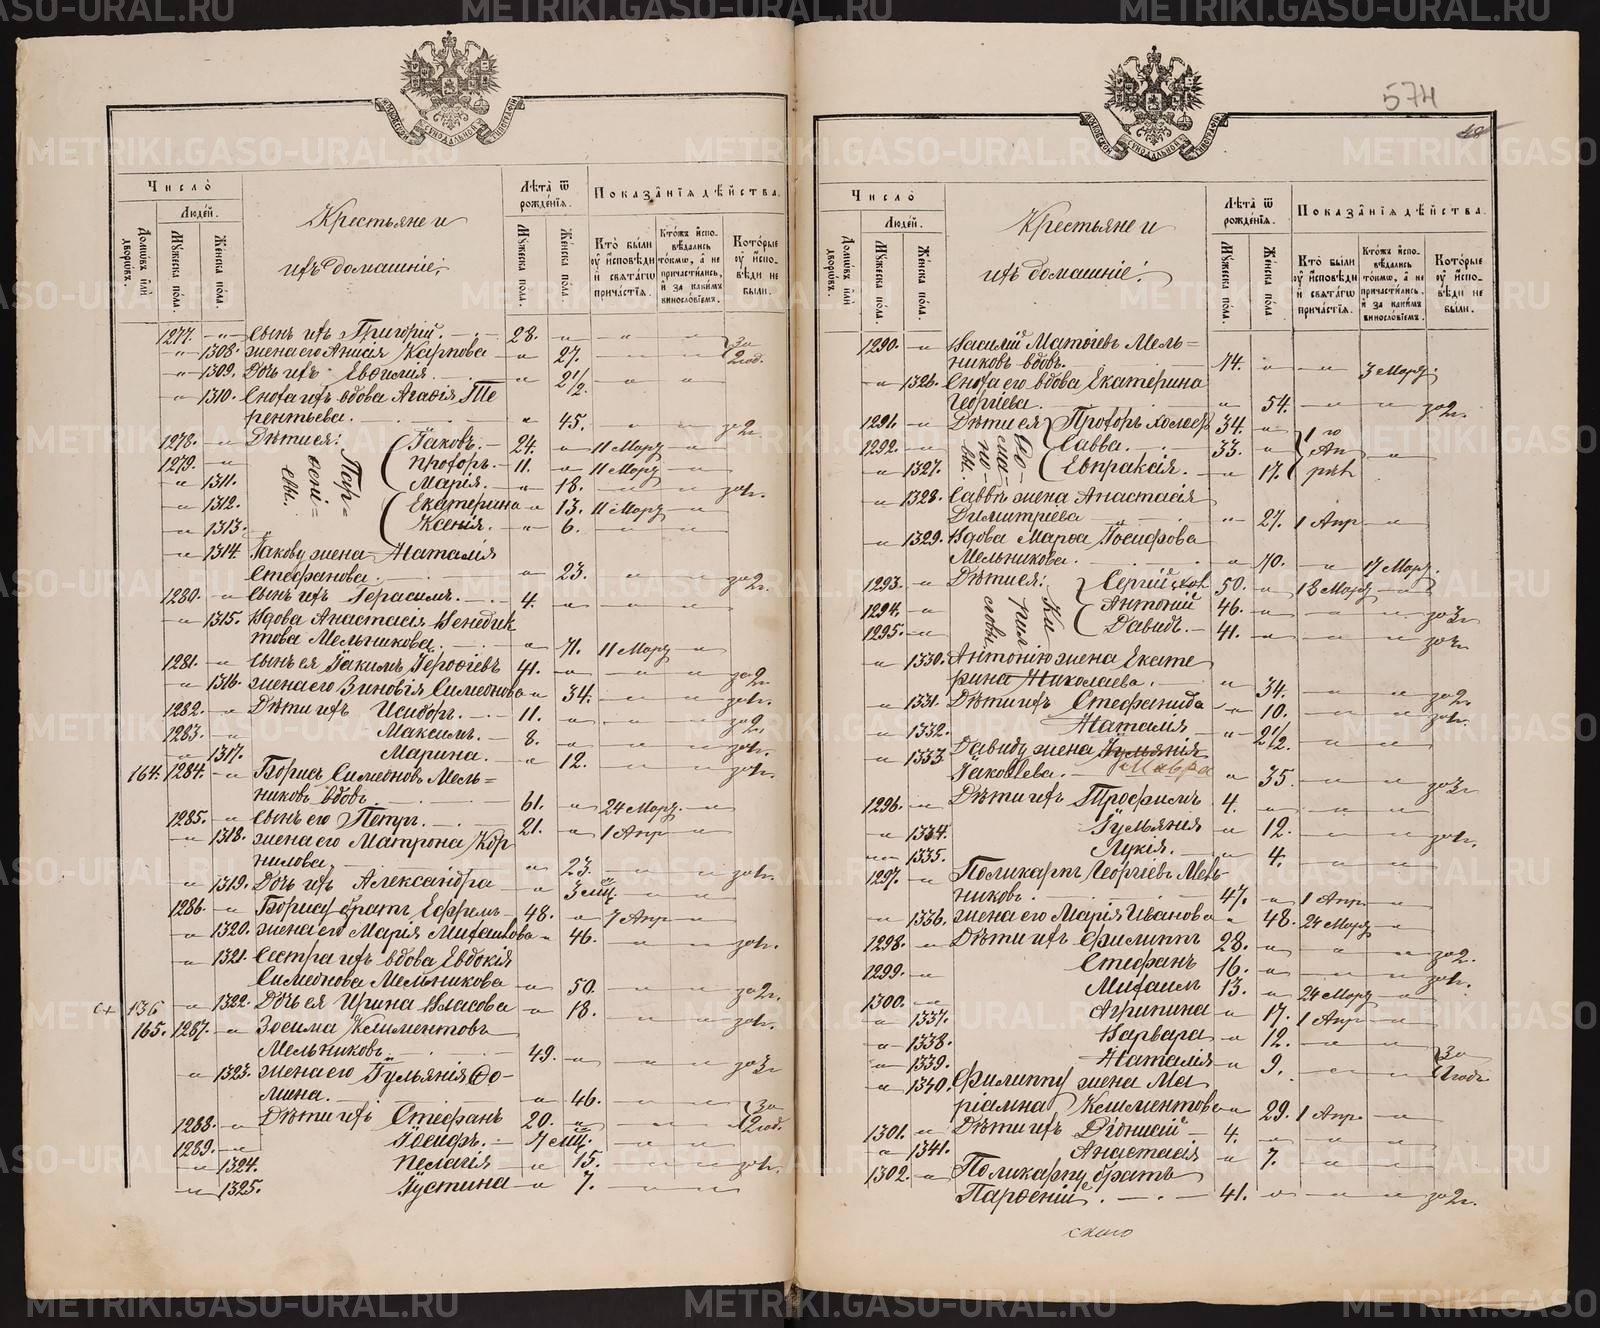 Число̀
Людѐй.
Домѡвъ илѝ дворѡвъ.
Мꙋжеска пола.
Женска пола.
Крестьяне и
ихъ домашніе:
Лѣта ѿ рожденїѧ.
Мꙋжеска пола.
Женска пола
Показанїѧ дѣйства.
Кто были оу исповѣди и свѧтагѡ причастїѧ.
Ктожъ исповѣдались токмѡ, а не причастились, и за какимъ винословїемъ.
Которые оу исповѣди не были.
1277. -„- Сынъ ихъ Григорій. 28. „ „ „
-„- 1308. жена его Анисія Карпова „ 27. „ „ За 2 год.
-„- 1309. Дочь ихъ Евѳимія. „ 2 1/2. „ „
-„- 1310. Сноха ихъ вдова Агафія Те
рентьева. „ 45. „ „ за 2 г.
1278. „ Дѣти ея: Іаковъ. 24. „ 11 Мар. „
1279. „ Прохоръ. 11. „ 11 Мар. „
„ 1311. Марія. „ 18. „ „ за 1 г.
„ 1312. Екатерина „ 13. 11 Мар. „
„ 1313. Ксенія. „ 6. „ „
„ 1314. Іакову жена Наталія
Стефанова. „ 23. „ „ за 2 г.
1280. „ Сынъ ихъ Герасимъ. 4. „ „ „
„ 1315. Вдова Анастасія Бенедик
това Мельникова. „ 71. 11 Мар. „
1281. „ Сынъ ея Іакимъ Героѳіевъ 41. „ „ „ за 2 г.
„ 1316. жена его Зиновія Симеонова „ 34. „ „ за 1 г.
1282. „ Дѣти ихъ Исидоръ. 11. „ „ „ за 2 г.
1283. „ Максимъ. 8. „ „ „ за 1 г.
„ 1317. Марина. „ 12. „ „ за 1 г.
164. 1284. „ Борисъ Симеоновъ Мель=
никовъ вдовъ. 61. „ 24 Мар. „
1285. „ Сынъ его Петръ. 21. „ 1 Апр „
„ 1318. жена его Матрона Кор
нилова „ 23. „ „ за 1 г.
„ 1319. Дочь ихъ Александра „ 3 мц. „ „
1286. „ Борису братъ Ефремъ 48. „ 7 Апр „
„ 1320. жена его Марія Михаилова „ 46. „ „ за 1 г.
„ 1321. Сестра ихъ вдова Евдокія
Симеонова Мельникова „ 50. „ „ за 2 г.
136 „ 1322. Дочь ея Ирина Власова „ 18. „ „ за 1 г.
165. 1287. „ Зосима Климентовъ
Мельниковъ. 49. „ „ „ за 3 г
„ 1323. жена его Іульянія Ѳо-
мина. „ 46. „ „ За
1288. „ Дѣти ихъ Стефанъ 20. „ „ „ 2 год.
1289. „ Іосифъ. 7 мц. „ „
„ 1324. Пелагія „ 15. „ „ за 1 г.
„ 1325. Іустина „ 7. „ „
574
Число̀
Людѐй.
Домѡвъ илѝ дворѡвъ.
Мꙋжеска пола.
Женска пола.
Крестьяне и
ихъ домашніе:
Лѣта ѿ рожденїѧ.
Мꙋжеска пола.
Женска пола.
Показанїѧ дѣйства.
Кто были оу исповѣди и свѧтагѡ причастїѧ.
Ктожъ исповѣдались токмѡ, а не причастились, и за какимъ винословїемъ.
Которые оу исповѣди не были.
1290. „ Василій Матѳіевъ Мель=
никовъ вдовъ. 74. „ „ 3 Мар.
„ 1326. Сноха его вдова Екатерина
Георгіева. „ 54. „ „ за 2 г.
1291. „ Дѣти ея Прохоръ холос. 34. „ 1 го
1292. „ Савва. 33. „ Ап „
„ 1327. Евпраксія. „ 17. рѣл
„ 1328. Саввѣ жена Анастасія
Димитріева „ 27. 1 Апр „
„ 1329. Вдова Марѳа Іосифова
Мельникова. „ 70. „ 17 Мар.
1293. „ Дѣти ея: Сергій хол. 50. „ 18 Мар. „
1294. „ Антоній 46. „ „ „ за 3 г
1295. „ Давидъ. 41. „ „ „ за 3 г.
„ 1330. Антонію жена Екате
рина Николаева. „ 34. „ „ за 2 г.
„ 1331. Дѣти ихъ Стефанида „ 10. „ „ за 1 г.
„ 1332. Наталія „ 2 1/2. „ „
„ 1333 Давиду жена Іульянія
Іаковлева. Мавра „ 35 „ „ за 3 г
1296. „ Дѣти ихъ Трофимъ 4. „ „ „
„ 1334. Іульянія „ 12. „ „ за 1 г.
„ 1335. Лукія. „ 4. „ „
1297. „ Поликарпъ Георгіевъ Мель-
никовъ. 47. „ 1 Апр „
„ 1336. жена его Марія Иванова „ 48. 24 Мар. „
1298. „ Дѣти ихъ Филиппъ 28. „ „ „ за 2.
1299. „ Стефанъ 16. „ „ „ за 1 г.
1300. „ Михаилъ 13. „ 24 Мар. „
„ 1337. Агрипина „ 17. 1 Апр „
„ 1338. Варвара „ 12. „ „ За
„ 1339. Наталія „ 9. „ „ 1 годъ
„ 1340. Филиппу жена Ма
ріамна Климентова „ 29. 1 Апр. „
1301. „ Дѣти ихъ Діонисій 4. „ „ „
„ 1341. Анастасія „ 7. „ „
1302. „ Поликарпу братъ
Парѳеній. 41. „ „ „ за 2 г.
скаго
METRIKI.GASO-URAL.RU